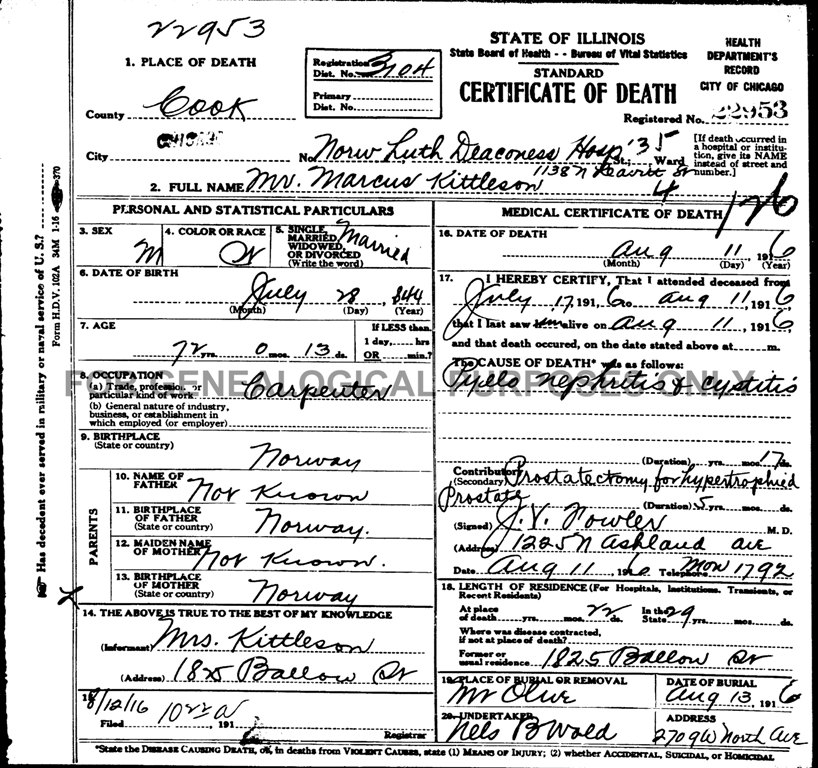 22953
STATE OF ILLINOIS
State Board of Health - - Bureau of Vital Statistics
STANDARD
CERTIFICATE OF DEATH
HEALTH
DEPARTMENT'S
RECORD
CITY OF CHICAGO
Registered No. 22953
1. PLACE OF DEATH
Registration
Dist. No. 3104
Primary
Dist. No.
County Cook
CHICAGO
City No. Norw Luth Deaconess Hosp St.; 35 Ward
1138 N Leavitt St
4
[If death occurred in
a hospital or institu-
tion, give its NAME
instead of street and
number.]
2. FULL NAME Mr. Marcus Kittleson
126
PERSONAL AND STATISTICAL PARTICULARS
3. SEX M
4. COLOR OR RACE W
5. SINGLE,
MARRIED,
WIDOWED,
OR DIVORCED
(Write the word)
Married
6. DATE OF BIRTH
July 28, 1844
(Month) (Day) (Year)
7. AGE
72 yrs. 0 mos. 13 ds.
If LESS than
1 day, hrs
OR min.?
8. OCCUPATION
(a) Trade, profession, or
particular kind of work Carpenter
(b) General nature of industry,
business, or establishment in
which employed (or employer)
9. BIRTHPLACE
(State or country)
Norway
PARENTS
10. NAME OF
FATHER Not Known
11. BIRTHPLACE
OF FATHER
(State or country) Norway.
12. MAIDEN NAME
OF MOTHER Not Known.
13. BIRTHPLACE
OF MOTHER
(State or country) Norway
14. THE ABOVE IS TRUE TO THE BEST OF MY KNOWLEDGE
(Informant) Mrs. Kittleson
(Address) 1825 Ballow St
15
8/12/16
Filed 191 6
Registrar
MEDICAL CERTIFICATE OF DEATH
16. DATE OF DEATH
Aug 11, 1916
(Month) (Day) (Year)
17. I HEREBY CERTIFY, That I attended deceased from
July 17, 1916, to Aug 11, 1916
that I last saw him alive on Aug 11, 1916
and that death occured, on the date stated above at m.
The CAUSE OF DEATH* was as follows:
Pyelo nephritis & cystitis
(Duration) yrs. mos. 17 ds.
Contributory
(Secondary) Prostatectomy for hypertrophied
Prostate (Duration) 5 yrs. mos. ds.
(Signed) J. V. Fowler M. D.
(Address) 1225 N Ashland ave
Date Aug 11, 1916 Telephone Mon 1792
18. LENGTH OF RESIDENCE (For Hospitals, Institutions, Transients, or
Recent Residents)
At place
of death yrs. mos. 22 ds.
In the
State 29 yrs. mos. ds.
Where was disease contracted,
if not at place of death?
Former or
usual residence 1825 Ballow St
19. PLACE OF BURIAL OR REMOVAL
Mt Olive
DATE OF BURIAL
Aug 13, 1916
20. UNDERTAKER
Nels B Wold
ADDRESS
2709 W North Ave
*State the DISEASE CAUSING DEATH, or, in deaths from VIOLENT CAUSES, state (1) MEANS OF INJURY; (2) whether ACCIDENTAL, SUICIDAL, or HOMICIDAL
Has decedent ever served in military or naval service of U. S.?
Form H.D.V. 102A 34M 1-16 370
FOR GENEALOGICAL PURPOSES ONLY